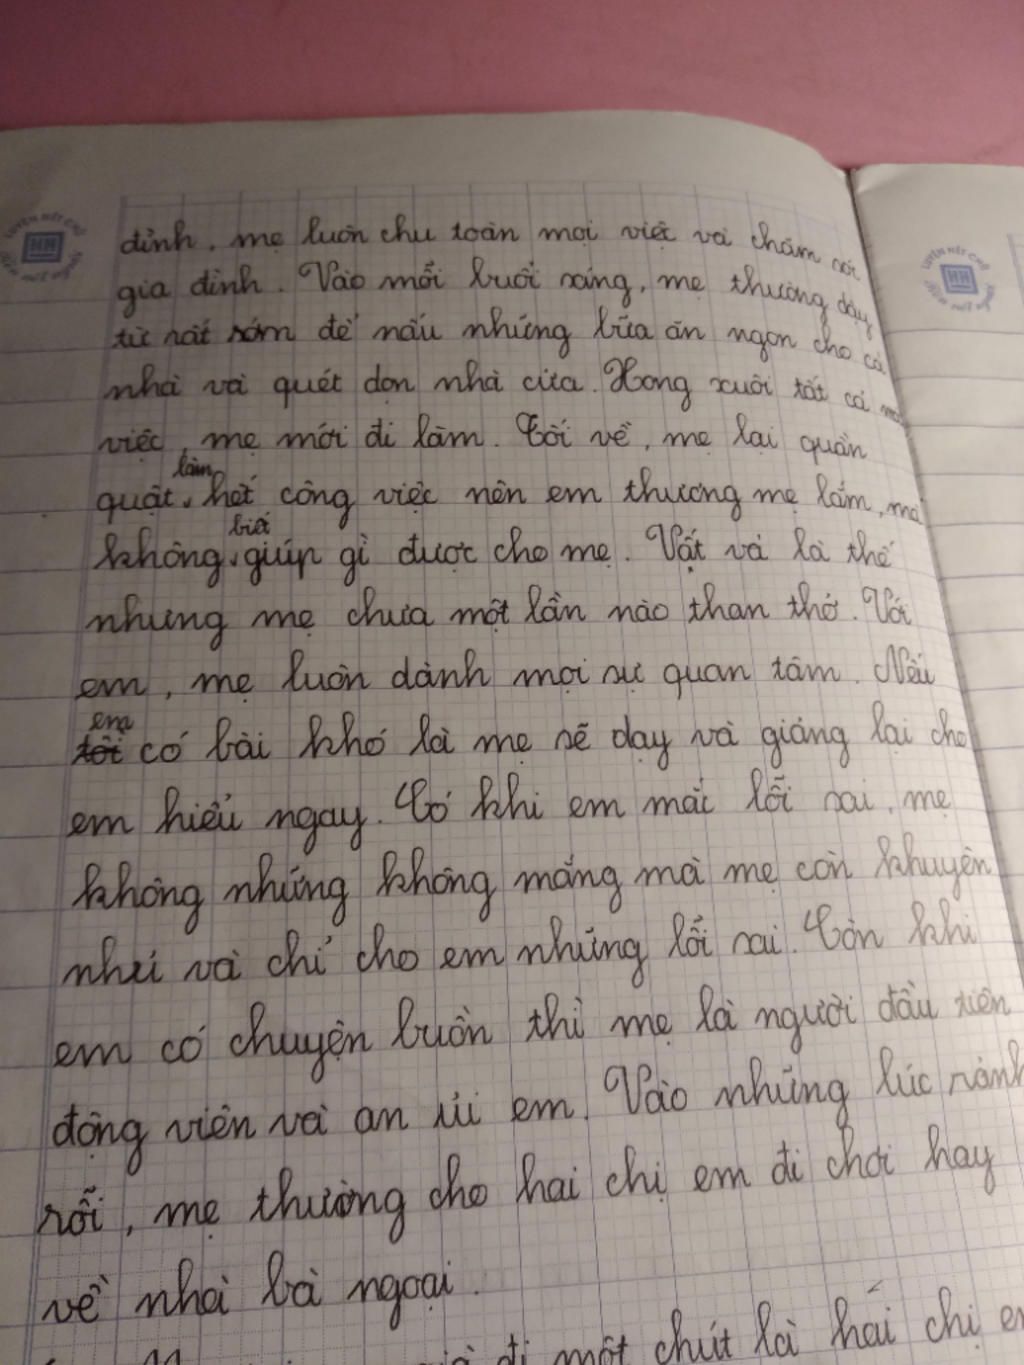 đình, mẹ luôn chu toàn mọi việc và chăm sóc
gia đình. Vào mỗi buổi sáng, mẹ thường dậy
từ rất sớm để nấu những bữa ăn ngon cho cả
nhà và quét dọn nhà cửa. Xong xuôi tất cả mọi
việc, mẹ mới đi làm. Tối về, mẹ lại quần
quật làm hết công việc nên em thương mẹ lắm, mà
không biết giúp gì được cho mẹ. Vất vả là thế
nhưng mẹ chưa một lần nào than thở. Với
em, mẹ luôn dành mọi sự quan tâm. Nếu
em có bài khó là mẹ sẽ dạy và giảng lại cho
em hiểu ngay. Có khi em mắc lỗi sai, mẹ
không những không mắng mà mẹ còn khuyên
nhủ và chỉ cho em những lỗi sai. Còn khi
em có chuyện buồn thì mẹ là người đầu tiên
động viên và an ủi em. Vào những lúc rảnh
rỗi, mẹ thường cho hai chị em đi chơi hay
về nhà bà ngoại.
đi một chút là hai chị em